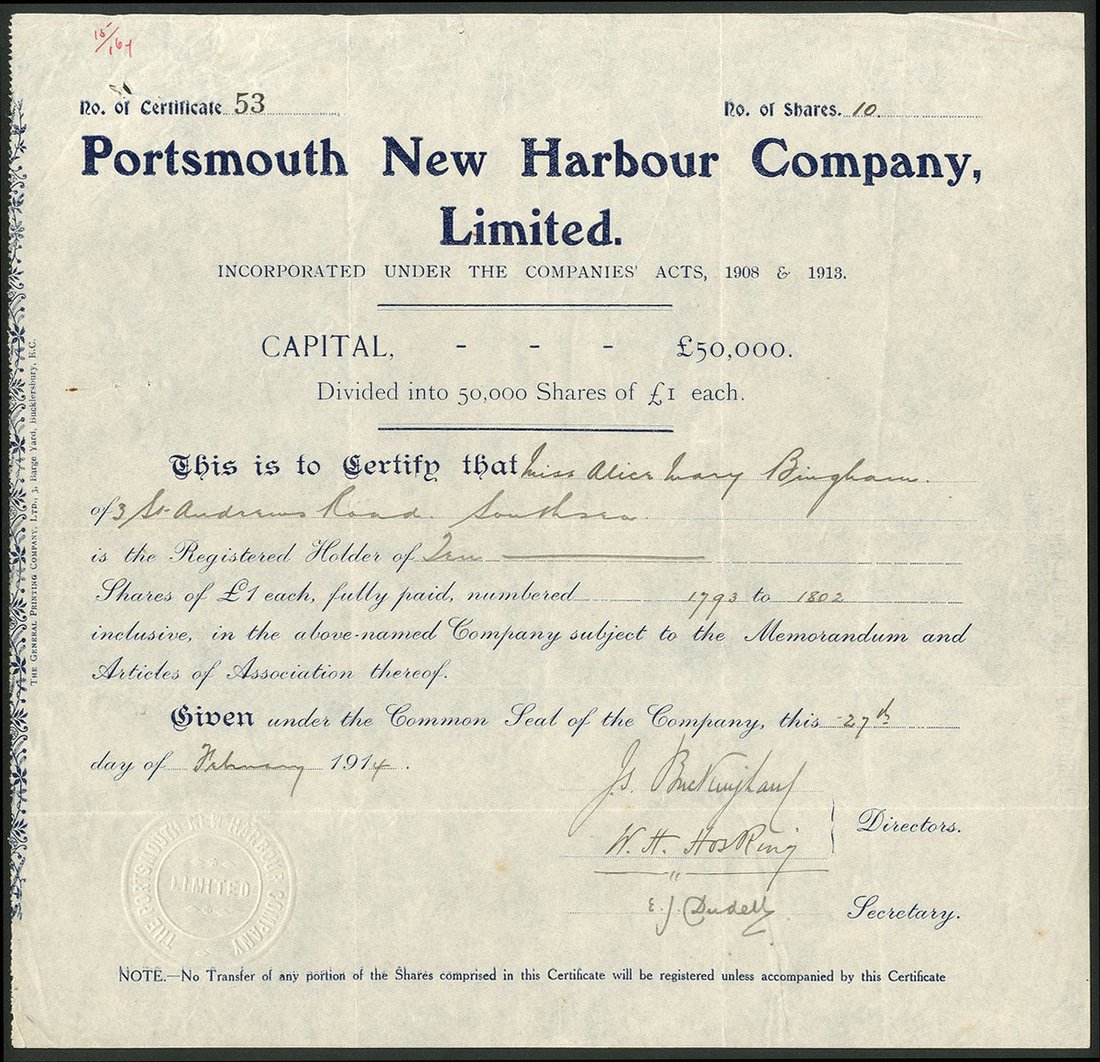 15/164
No. of Certificate 53
No. of Shares. 10.
Portsmouth New Harbour Company,
Limited.
INCORPORATED UNDER THE COMPANIES' ACTS, 1908 & 1913.
CAPITAL, - - - £50,000.
Divided into 50,000 Shares of £1 each.
This is to Certify that Miss Alice Mary Bingham.
of 3 St. Andrews Road Southsea
is the Registered Holder of Ten
Shares of £1 each, fully paid, numbered 1793 to 1802
inclusive, in the above-named Company subject to the Memorandum and
Articles of Association thereof.
Given under the Common Seal of the Company, this 27th
day of February 1914.
J.S. Buckingham
W. H. Hosking
Directors.
E. J. Dudell
Secretary.
THE PORTSMOUTH NEW HARBOUR COMPANY
LIMITED
NOTE.—No Transfer of any portion of the Shares comprised in this Certificate will be registered unless accompanied by this Certificate
THE GENERAL PRINTING COMPANY, LTD., 3, Barge Yard, Bucklersbury, E.C.